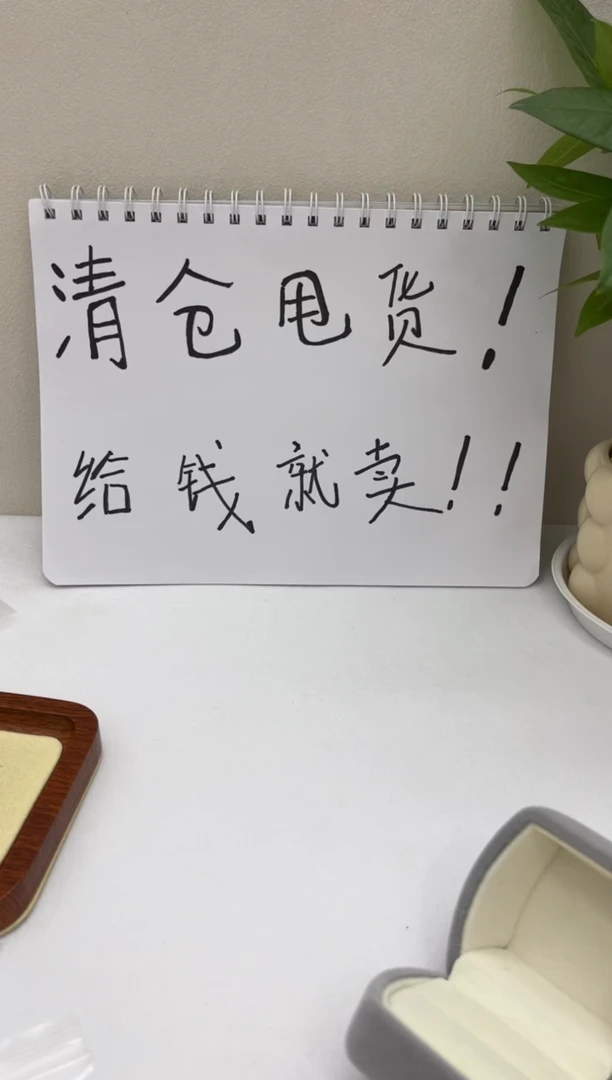 清仓甩货！
给钱就卖！！